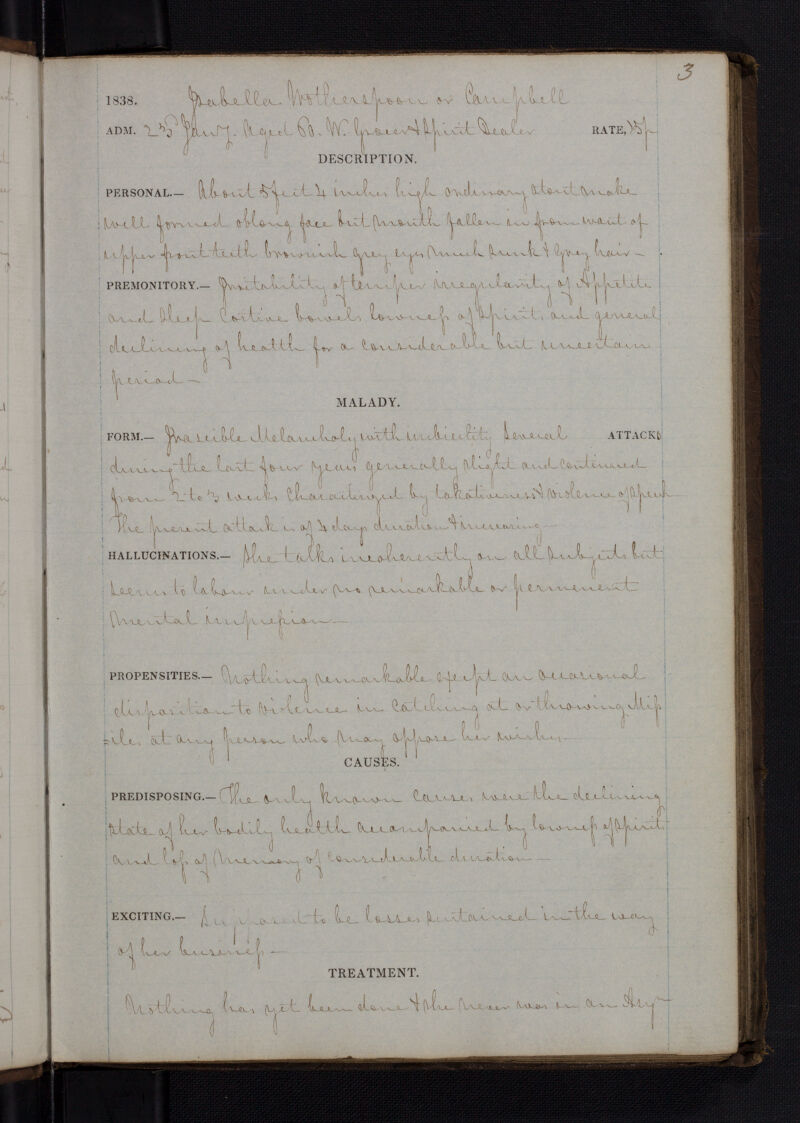 3
1838. Isabella Wotherspoon or Campbell
ADM. 23d Jany. Aged 60. W. Grocer & Spirit Dealer RATE,
DESCRIPTION.
PERSONAL.— About 5 feet 4 inches high ordinary stout make
well formed oblong face but mouth fallen in from want of
upper front teeth brownish grey eyes much sunk & Grey hair —
PREMONITORY.— Irritability of temper irregularity of Appetite
and Sleep Costive bowels lowness of Spirits and general
declining of health for a considerable but uncertain
period —
MALADY.
FORM.— Irascible Melancholy with imbecility Several ATTACKS
during the last four years generally slight and continued
from 2 to 3 weeks Characterized by talkativeness & violence of speech
The present attack is of 4 days duration & increasing —
HALLUCINATIONS.— She talks incoherently on all subjects but
seems to labour under no remarkable or permenent
mental impression —
PROPENSITIES.— Nothing remarkable except an occasional
disposition to violence in catching at or throwing Mis
=siles at any person who may oppose her wishes —
CAUSES.
PREDISPOSING.— The only known causes were the declining
state of her bodily health accompanied by lowness of Spirits
and loss of Memory of considerable duration —
EXCITING.— Supposed to be losses sustained in the way
of her business —
TREATMENT.
Nothing has yet been done & she never was in an Asym